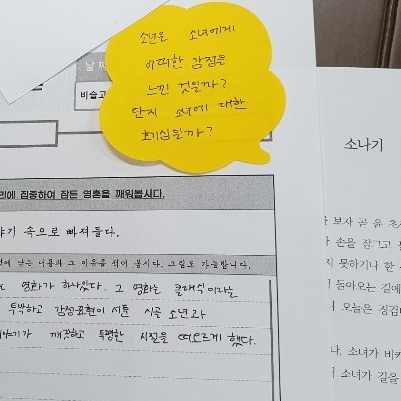 소년은 소녀에게
어떠한 감정을
느낀 것일까?
단지 소녀에 대한
호기심일까?
날짜
비슬고
소나기
리에 집중하여 잠든 영혼을 깨워봅시다.
야기 속으로 빠져들다.
에 남는 내용과 그 이유를 적어 봅시다. 그림도 가능합니다.
영화가 하나있다. 그 영화는 클래식이라는
투박하고 감정표현이 서툰 시골 소년과
이야기가 깨끗하고 특별한 시절을 떠오르게 했다.
를 보자 곧 윤 초
손을 잠그고
지 못하기나 한
돌아오는 길에
오늘은 징검
다. 소녀가 비키
소녀가 길을